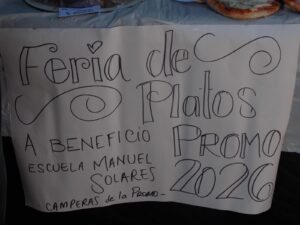 Feria de
Platos
A BENEFICIO
ESCUELA MANUEL
SOLARES
PROMO
2026
- CAMPERAS de la PROMO -